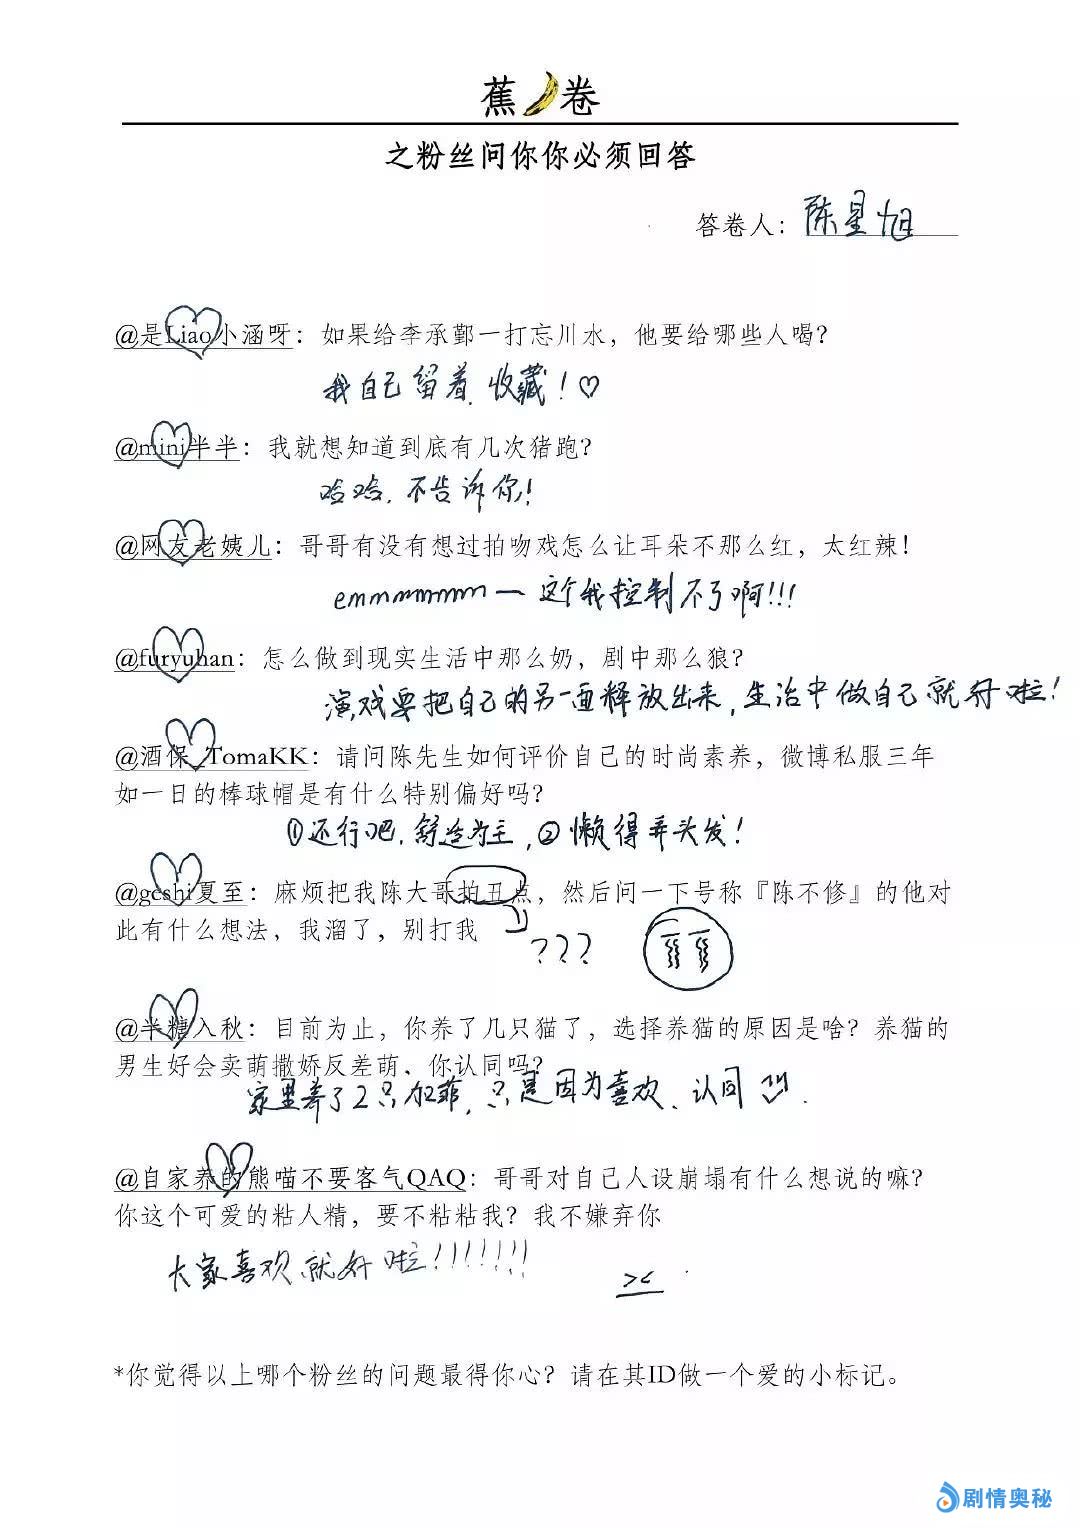 蕉卷
之粉丝问你你必须回答
答卷人：陈星旭
@是Liao小涵呀：如果给李承鄞一打忘川水，他要给哪些人喝？
我自己留着.收藏！♡
@mini半半：我就想知道到底有几次猪跑？
哈哈.不告诉你！
@网友老姨儿：哥哥有没有想过拍吻戏怎么让耳朵不那么红，太红辣！
emmmmmmm一这个我控制不了啊!!!
@furyuhan：怎么做到现实生活中那么奶，剧中那么狼？
演戏要把自己的另一面释放出来，生活中做自己就好啦！
@酒保_TomaKK：请问陈先生如何评价自己的时尚素养，微博私服三年
如一日的棒球帽是有什么特别偏好吗？
①还行吧.舒适为主，②懒得弄头发！
@geshi夏至：麻烦把我陈大哥拍丑点，然后问一下号称『陈不修』的他对
此有什么想法，我溜了，别打我
???
@半糖入秋：目前为止，你养了几只猫了，选择养猫的原因是啥？养猫的
男生好会卖萌撒娇反差萌，你认同吗？
家里养了2只加菲，只是因为喜欢、认同
@自家养的熊喵不要客气QAQ：哥哥对自己人设崩塌有什么想说的嘛？
你这个可爱的粘人精，要不粘粘我？我不嫌弃你
大家喜欢就好啦!!!!!!!
><
*你觉得以上哪个粉丝的问题最得你心？请在其ID做一个爱的小标记。
剧情奥秘